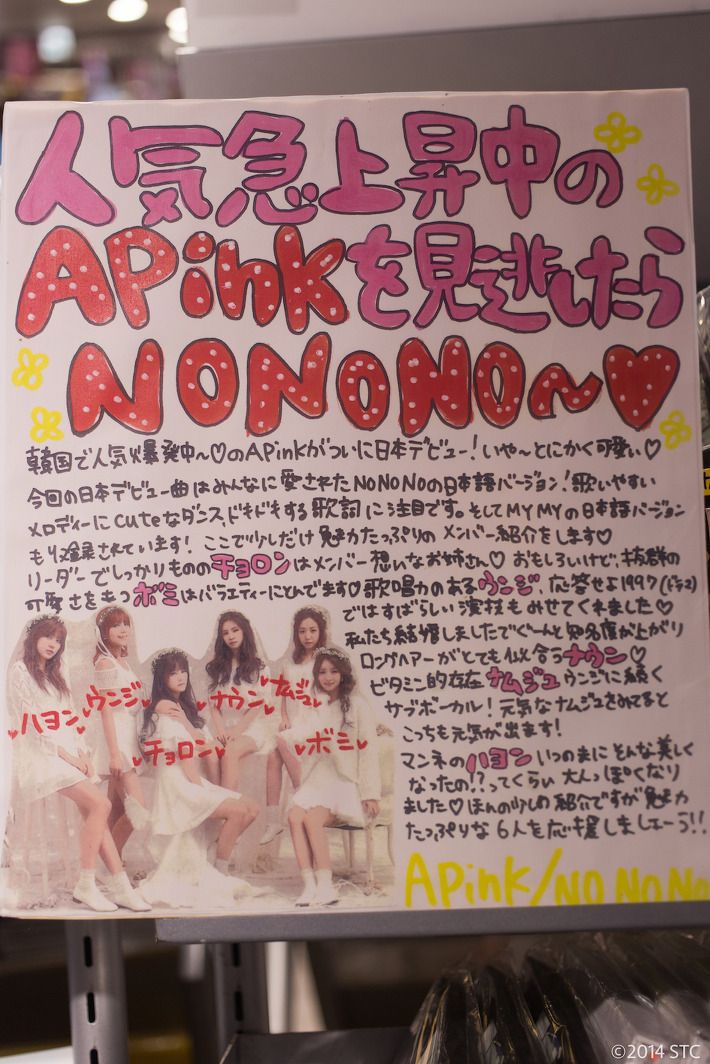 人気急上昇中の
APinkを見逃したら
NONONO〜♥
韓国で人気爆発中〜♡のAPinkがついに日本デビュー!いや〜とにかく可愛い♡
今回の日本デビュー曲はみんなに愛されたNONONOの日本語バージョン!歌いやすい
メロディーにcuteなダンスドキドキする歌詞に注目です。そしてMYMYの日本語バージョン
も収録されています! ここで少しだけ魅力たっぷりのメンバー紹介をします♡
リーダーでしっかりもののチョロンはメンバー想いなお姉さん♡ おもしろいけど、抜群の
可愛さをもつボミはバラエティーにとんでます♡歌唱力のあるウンジ、応答せよ1997(ドラマ)
ではすばらしい演技もみせてくれました♡
私たち結婚しましたでぐーんと知名度が上がり
ロングヘアーがとても似合うナウン♡
ビタミン的存在ナムジュウンジに続く
サブボーカル!元気なナムジュをみてると
こっちも元気が出ます!
マンネのハヨンいつのまにそんな美しく
なったの!?ってくらい大人っぽくなり
ました♡ほんの少しの紹介ですが魅力
たっぷりな6人を応援しましょーう!!
♥ハヨン♥
♥ウンジ♥
♥チョロン♥
♥ナウン♥
♥ナムジュ♥
♥ボミ♥
APink/NONONO
©2014 STC